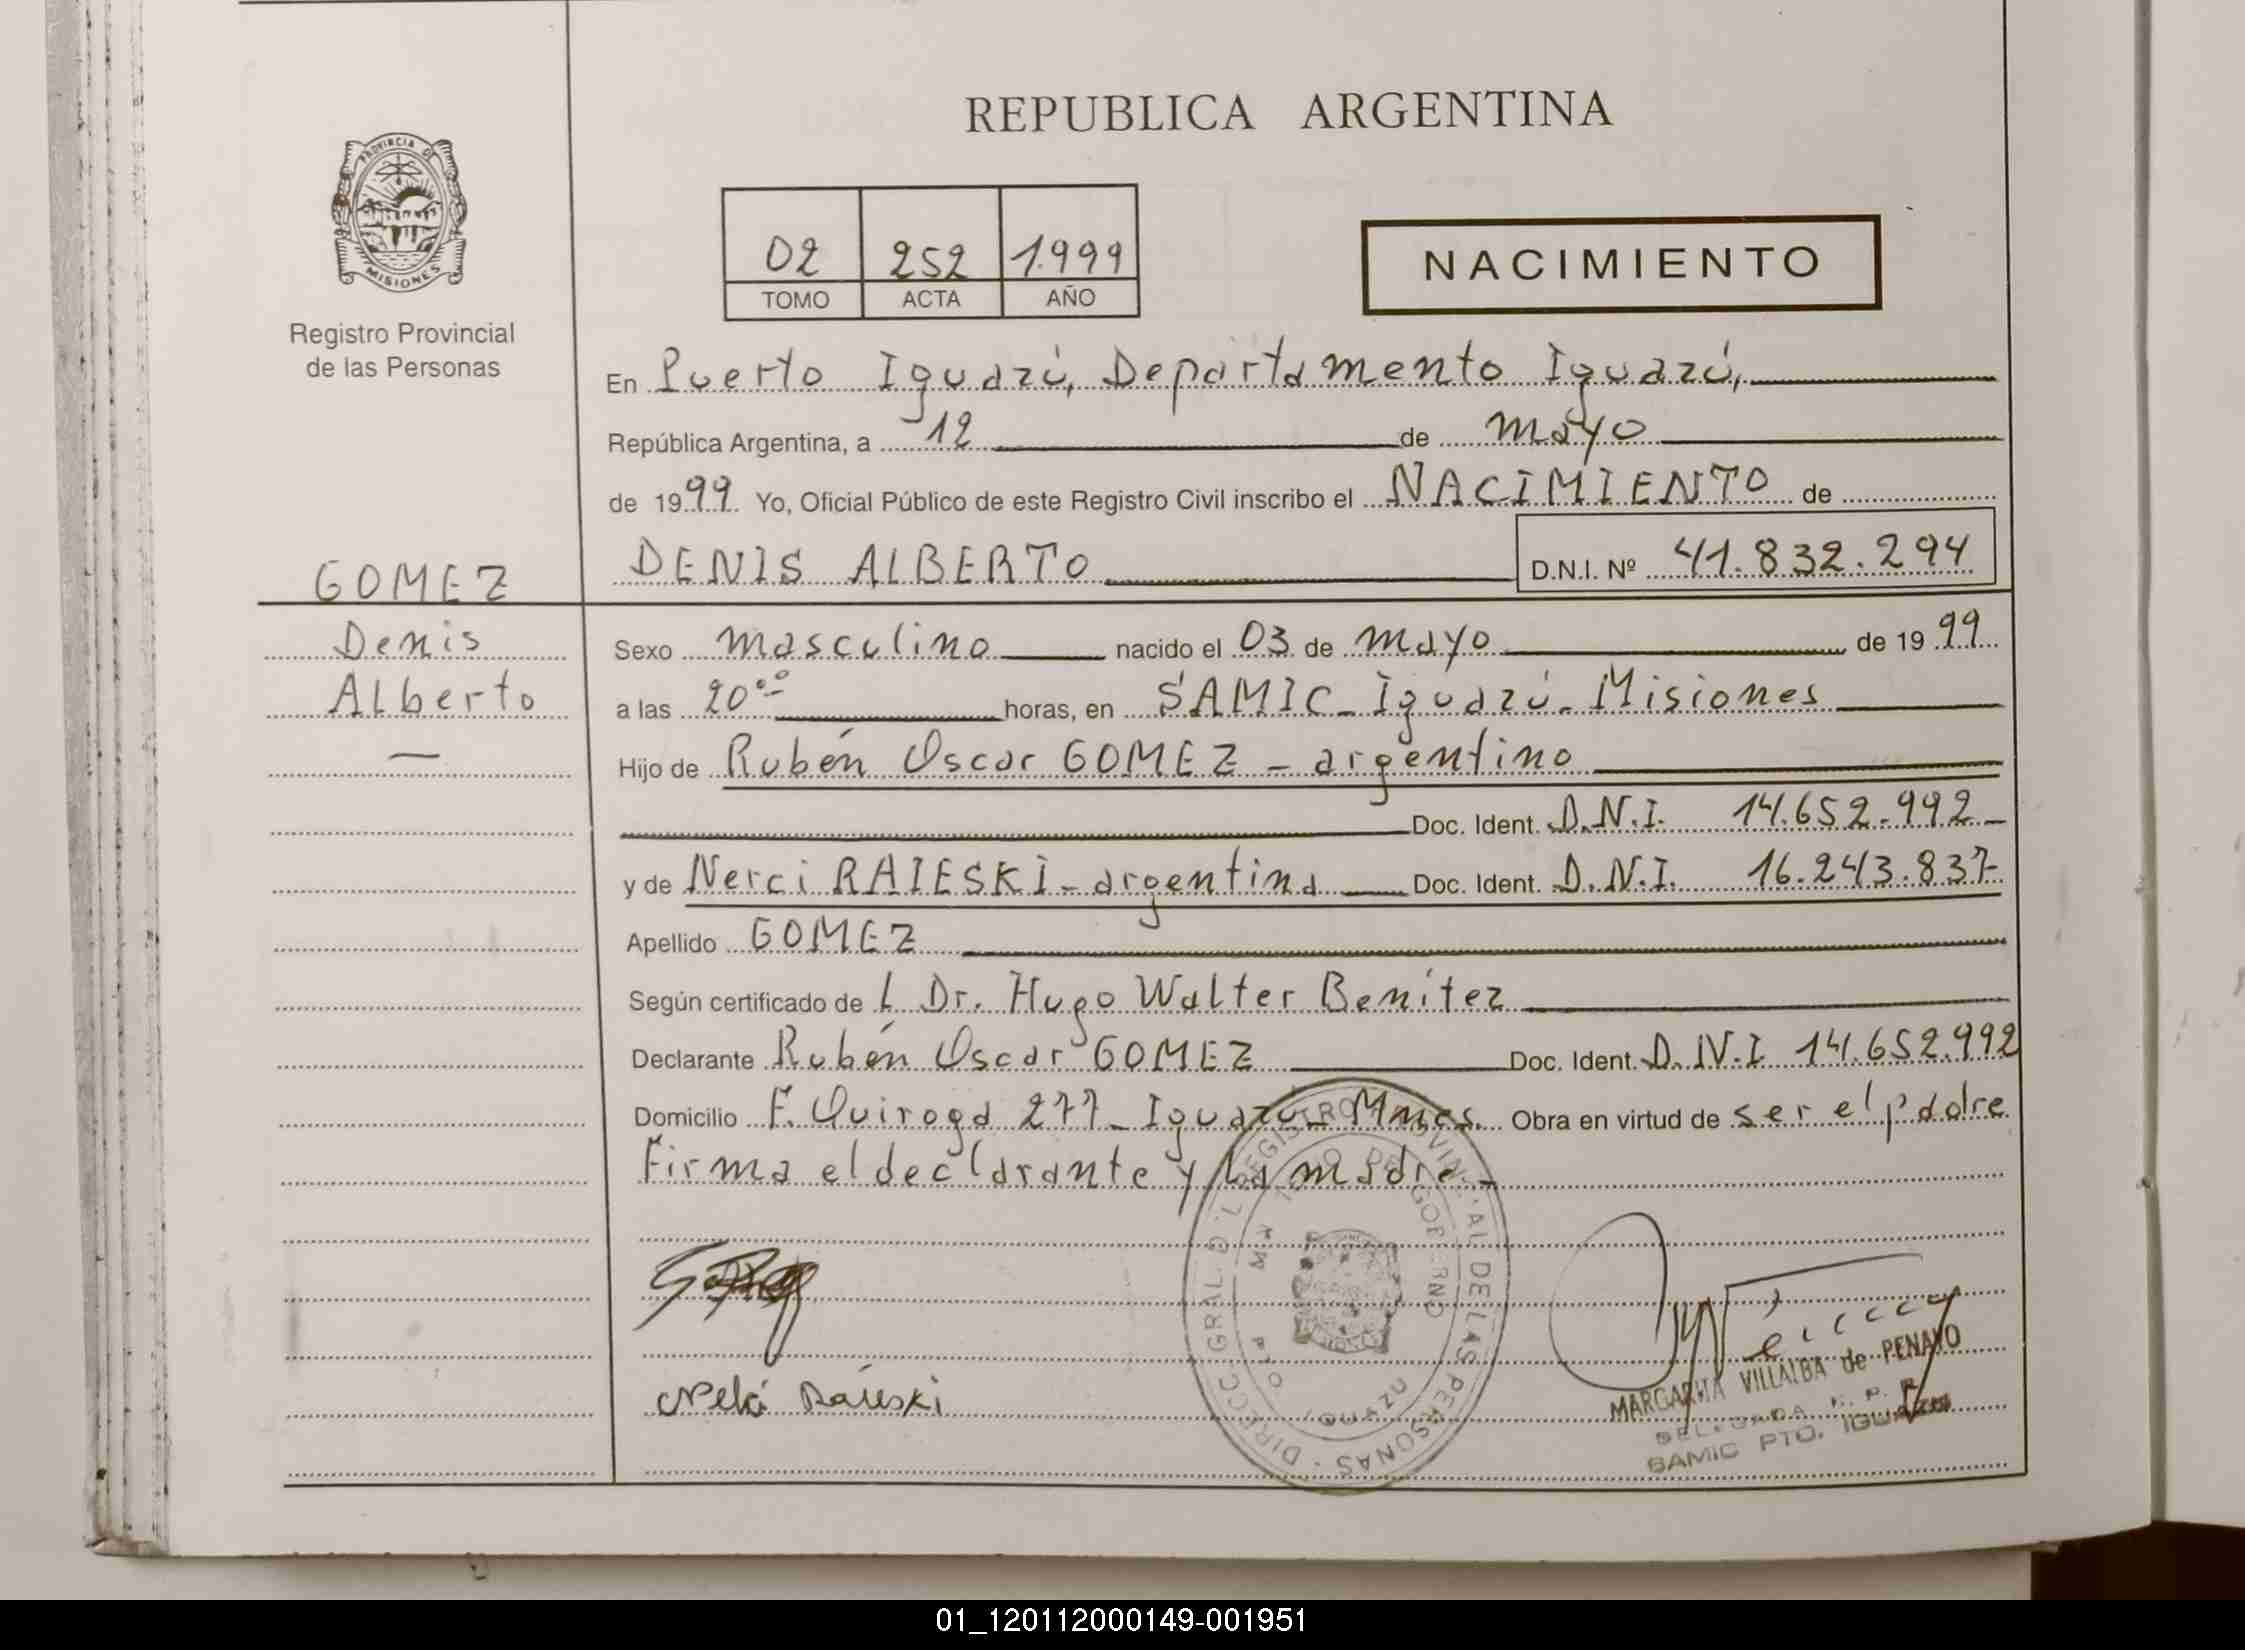 REPUBLICA ARGENTINA
PROVINCIA DE MISIONES
Registro Provincial
de las Personas
02 252 1.999
TOMO ACTA AÑO
NACIMIENTO
En Puerto Iguazú, Departamento Iguazú,
República Argentina, a 12 de mayo
de 1999 Yo, Oficial Público de este Registro Civil inscribo el NACIMIENTO de
GOMEZ DENIS ALBERTO D.N.I. Nº 41.832.294
Denis
Alberto
Sexo masculino nacido el 03 de mayo de 1999
a las 20°° horas, en SAMIC - Iguazú - Misiones
Hijo de Rubén Oscar GOMEZ - argentino
Doc. Ident. D.N.I. 14.652.992 -
y de Nerci RAIESKI - argentina Doc. Ident. D.N.I. 16.243.837
Apellido GOMEZ
Según certificado de L Dr. Hugo Walter Benítez
Declarante Rubén Oscar GOMEZ Doc. Ident. D.N.I 14.652.992
Domicilio F. Quiroga 277 - Iguazú - Mnes. Obra en virtud de ser el padre
Firma el declarante y la madre -
DIRECC. GRAL. DEL REGISTRO PROVINCIAL DE LAS PERSONAS
GOBIERNO
IGUAZU
Raieski
MARGARITA VILLALBA de PENAYO
DELEGADA R. P. P.
SAMIC PTO. IGUAZU
01_120112000149-001951